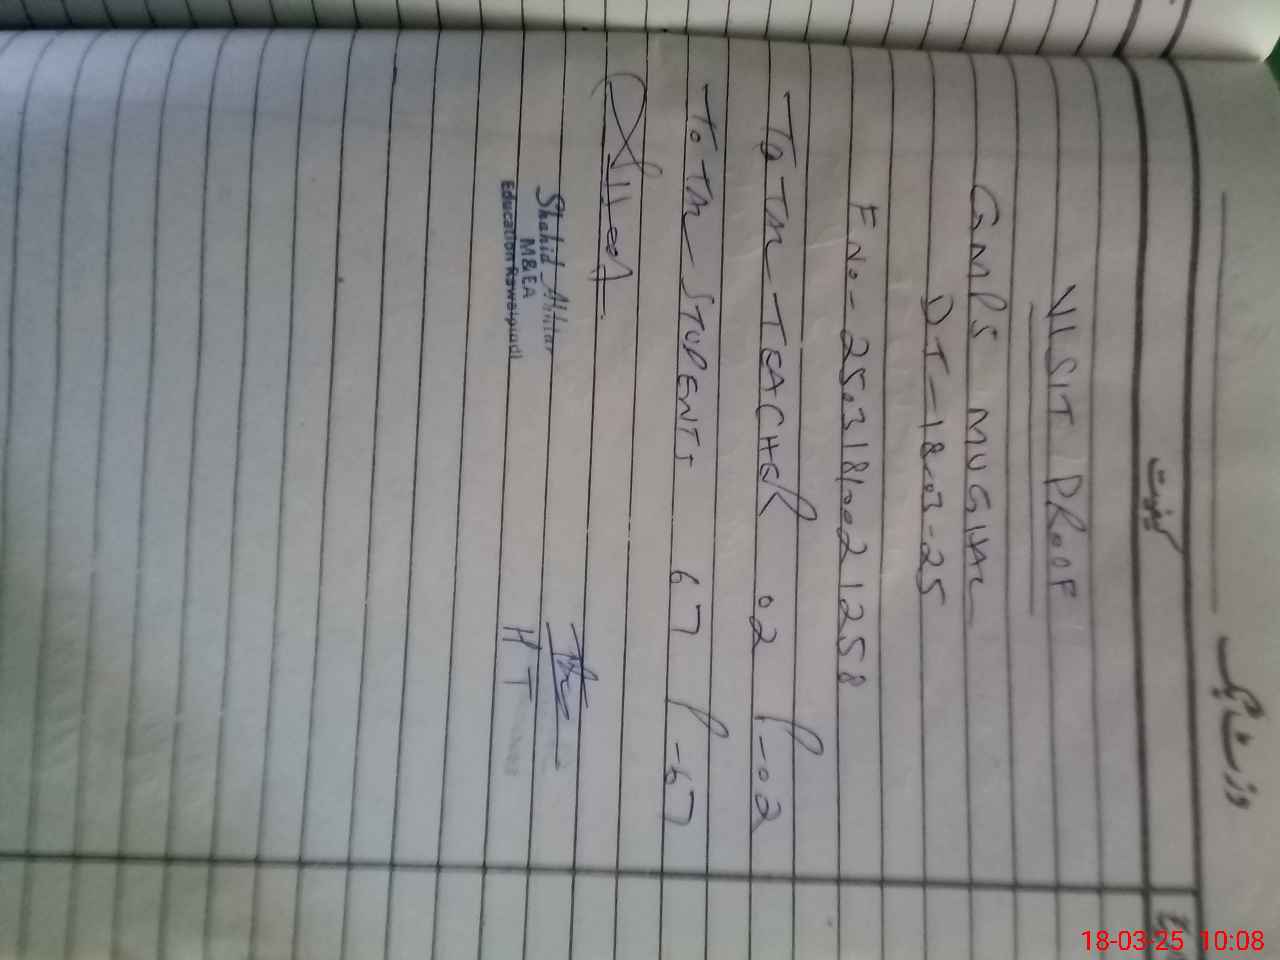 وزٹ بک
کیفیت
VISIT PROOF
GMPS MUGHAL
DT-18-03-25
F No- 2503181002 1258
TOTAL TEACHER 02 P-02
TOTAL STUDENTS 67 P-67
Shahid Akhtar
M&EA
Education Rawalpindi
H T
18-03-25 10:08